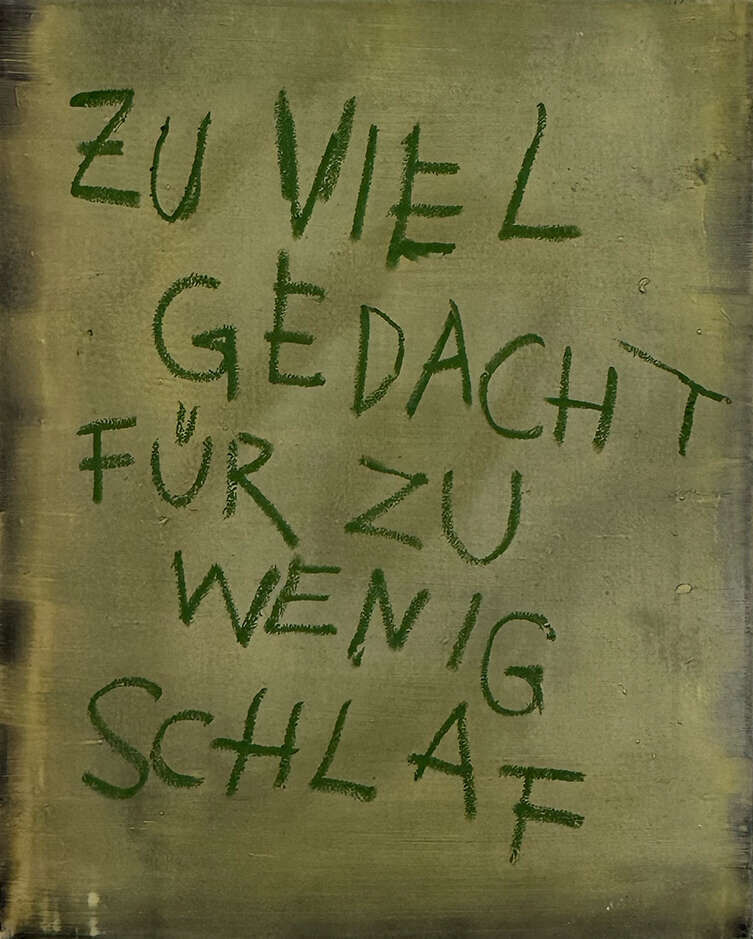 ZU VIEL
GEDACHT
FÜR ZU
WENIG
SCHLAF